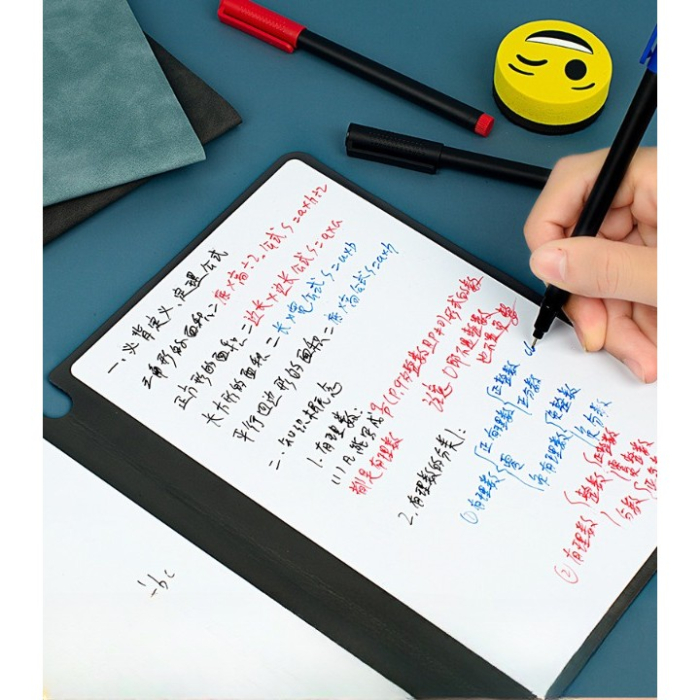 一、必背定义、定理公式
三角形的面积=底×高÷2。公式 S=a×h÷2
正方形的面积=边长×边长 公式 S=a×a
长方形的面积=长×宽 公式 S=a×b
平行四边形的面积=底×高 公式 S=a×h
二、知识概念
1.有理数:
(1)凡能写成 q/p (p,q为整数且p≠0)形式的数
都是有理数
0即不是正数
也不是负数
2.有理数的分类:
①有理数 正有理数 正整数
正分数
零
负有理数 负整数
负分数
②有理数 整数 正整数
零
负整数
分数 正分数